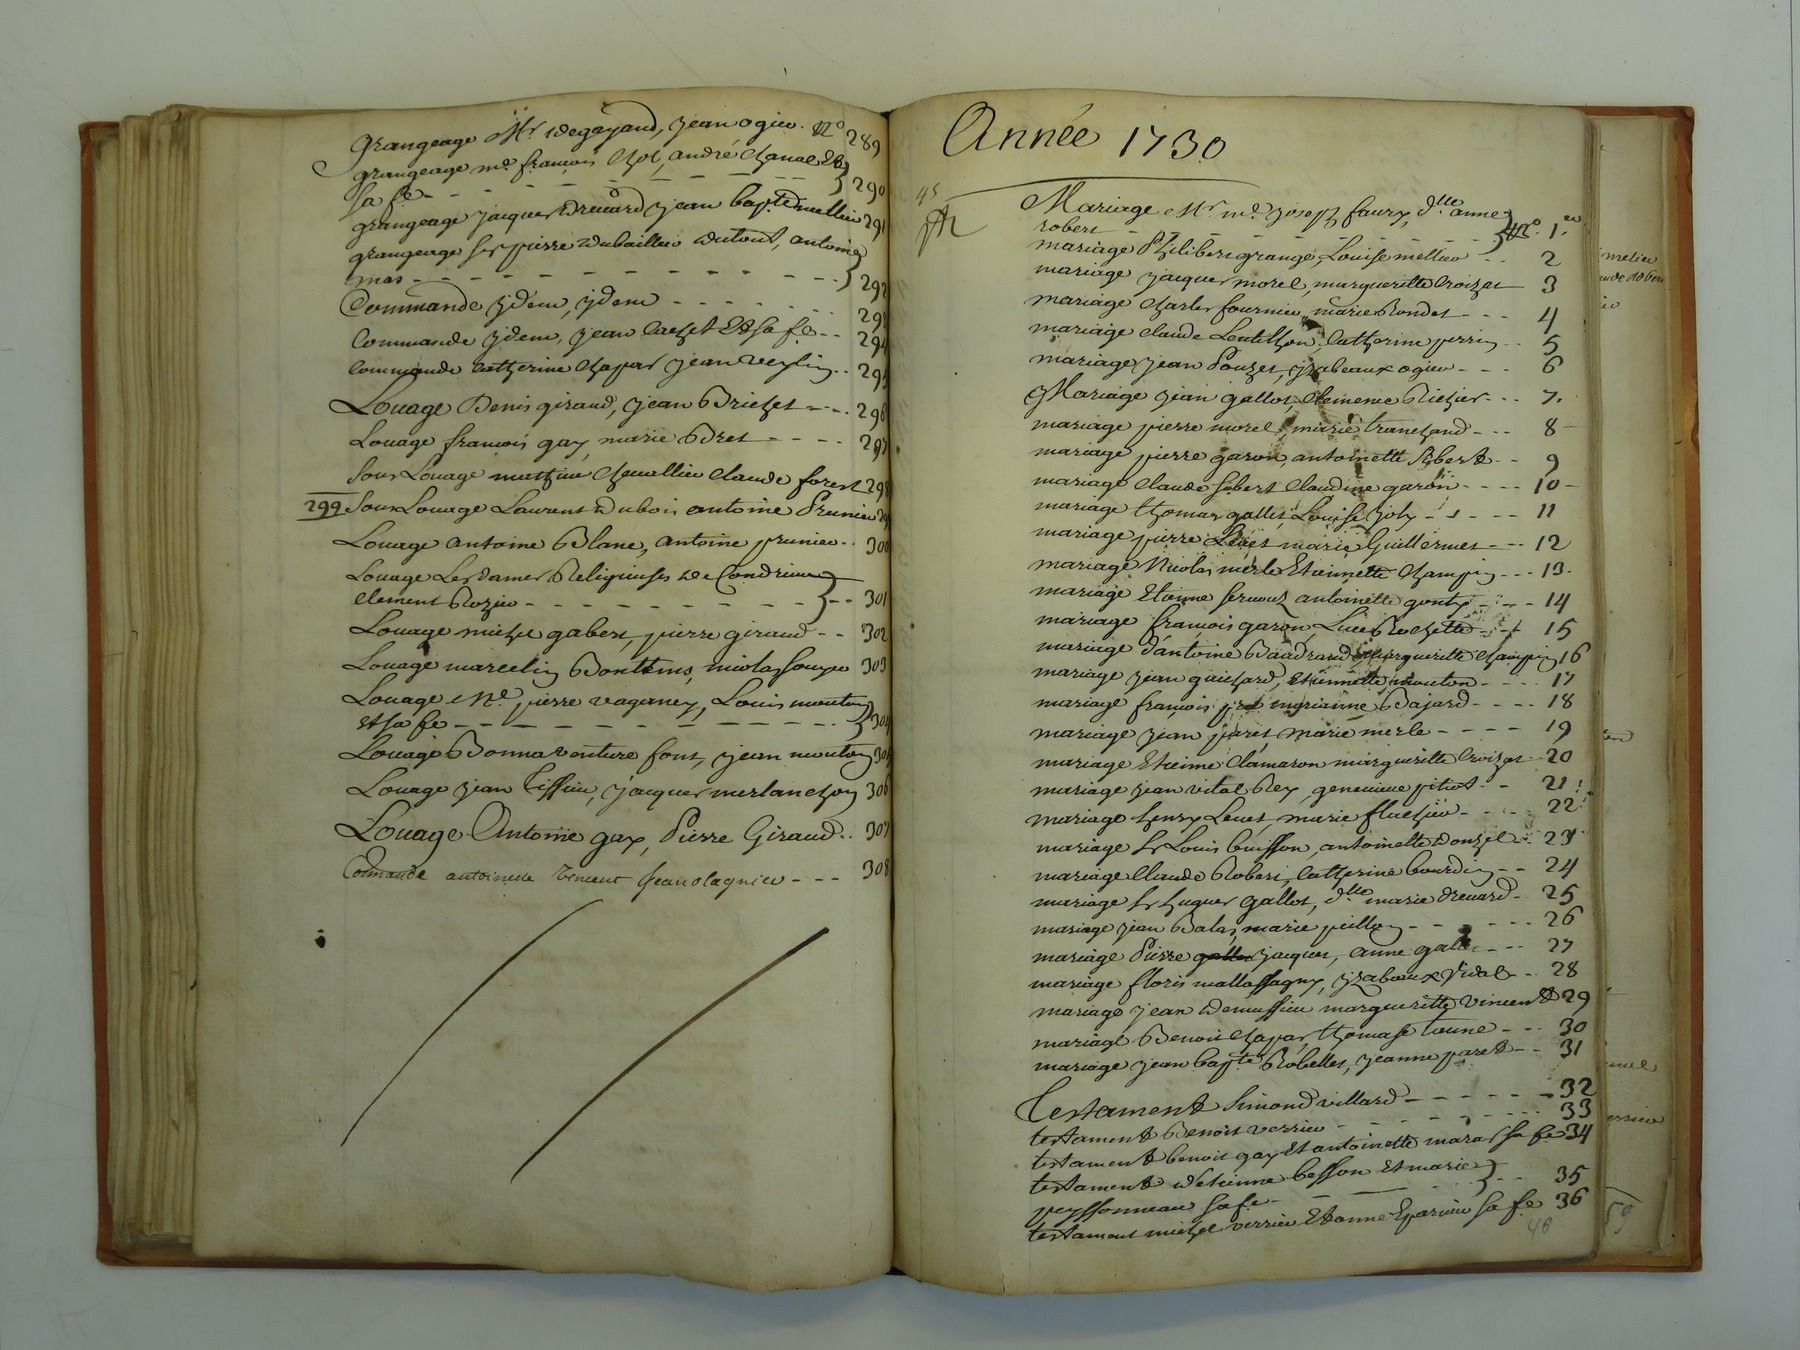 grangeage Mr degayand, jean ogier. No 289
grangeage me. françois Chol, andré Chanal Et
sa fe - - - - - - - 290
grangeage jacques Drevard jean bapte mellier 291
grangeage sr pierre Dubaillier Dutout, antoine
mas - - - - - - - - - - 292
Commande ydem, ydem - - - - - 293
Commande ydem, jean Et sa fe - - 294
Commande Catherine Chapas jean veylin - - 295
Louage Denis giraud, jean Brichet - - - 296
Louage françois gay, marie Bret - - - - 297
Sous Louage mathieu Chevallier Claude forest 298
299 Sous Louage Laurent Dubois antoine Prunier 29
Louage antoine Blanc, antoine prunier - - 300
Louage Les dames Religieuses de Condrieu
Clement Rozier - - - - - - - - - - 301
Louage michel gabert, pierre giraud - - 302
Louage marcelin Bonttems, nicolas 303
Louage Me. pierre vaganey, Louis mouton
et sa fe - - - - - - - - - 304
Louage Bonnaventure font, jean mouton 305
Louage jean Tissieu, jacques merlanchon 306
Louage Antoine gay, Pierre Giraud - - 307
Commande antoinette vincent jean olagnier - - - 308
Année 1730
45
Mariage Mr me. joseph faury, dlle anne
robert - - - - - - - No. 1.er
mariage Philibert grange, Louise mellier - - 2
mariage jacques morel, marguerite Croizat 3
mariage Charles fournier, marie Rondet - - - 4
mariage Claude Lentithon, Catherine perrin - - 5
mariage jean Pouzet, yzabeaux ogier - - - 6
Mariage jean gallot, Clemence Richier - - - 7.
mariage pierre morel, marie tranchand - - - 8
mariage pierre garon, antoinette - - 9
mariage Claude Claudine garon - - - - 10
mariage thomas gallet, Louise joly - - - - 11
mariage pierre Levet marie Guillermet - - - 12
mariage Nicolas merle Etiennette Champin - - - 13.
mariage Etienne antoinette gonty - - - 14
mariage françois garon, Luce Rochette - - + 15
mariage d'antoine Baudrand marguerite Champin 16
mariage jean guichard, Etiennette mouton - - - - 17
mariage françois marianne Bajard - - - - 18
mariage jean paret, marie merle - - - - 19
mariage Etienne Clamaron marguerite Croizat - 20
mariage jean vital Rey, genevieve pitiot - - 21
mariage henry Levet, marie flachier - - - - 22
mariage sr Louis buisson, antoinette Donzel - - 23
mariage Claude Robert, Catherine bourdin - - 24
mariage sr hugues gallot, dlle marie Drevard - 25
mariage jean Balas, marie peillon - - - - - 26
mariage Pierre jacques, anne - - - 27
mariage floris mallassagny, yzabeaux Vidal - - 28
mariage jean Demussieu marguerite vincent 29
mariage Benoit Chapas, thomase - - - 30
mariage jean bapte Robelles, jeanne paret - - 31
Testament Simond villard - - - - - - 32
testament Benoit verrier - - - - - - 33
testament benoit gay Et antoinette maras sa fe 34
testament d'etienne besson Et marie
peyssonneau sa fe - - - - 35
testament michel verrier Et anne Eparvier sa fe 36